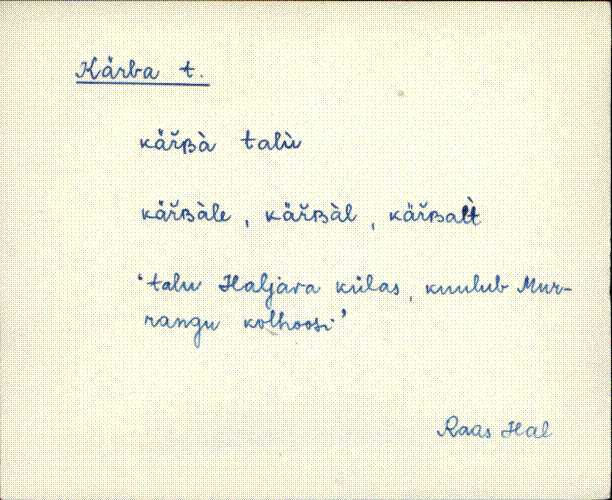 Kärba t.
kär̆ʙà talù
kär̆ʙàle, kär̆ʙàl, kär̆ʙalt̀
‘talu Haljava külas, kuulub Mur-
rangu kolhoosi’
Raas Hal